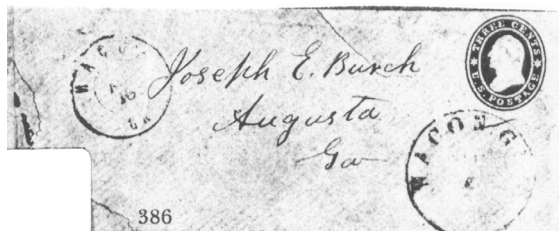 MACON
GA
Joseph E. Burch
Augusta
Ga
THREE CENTS
U.S. POSTAGE
MACON G
386